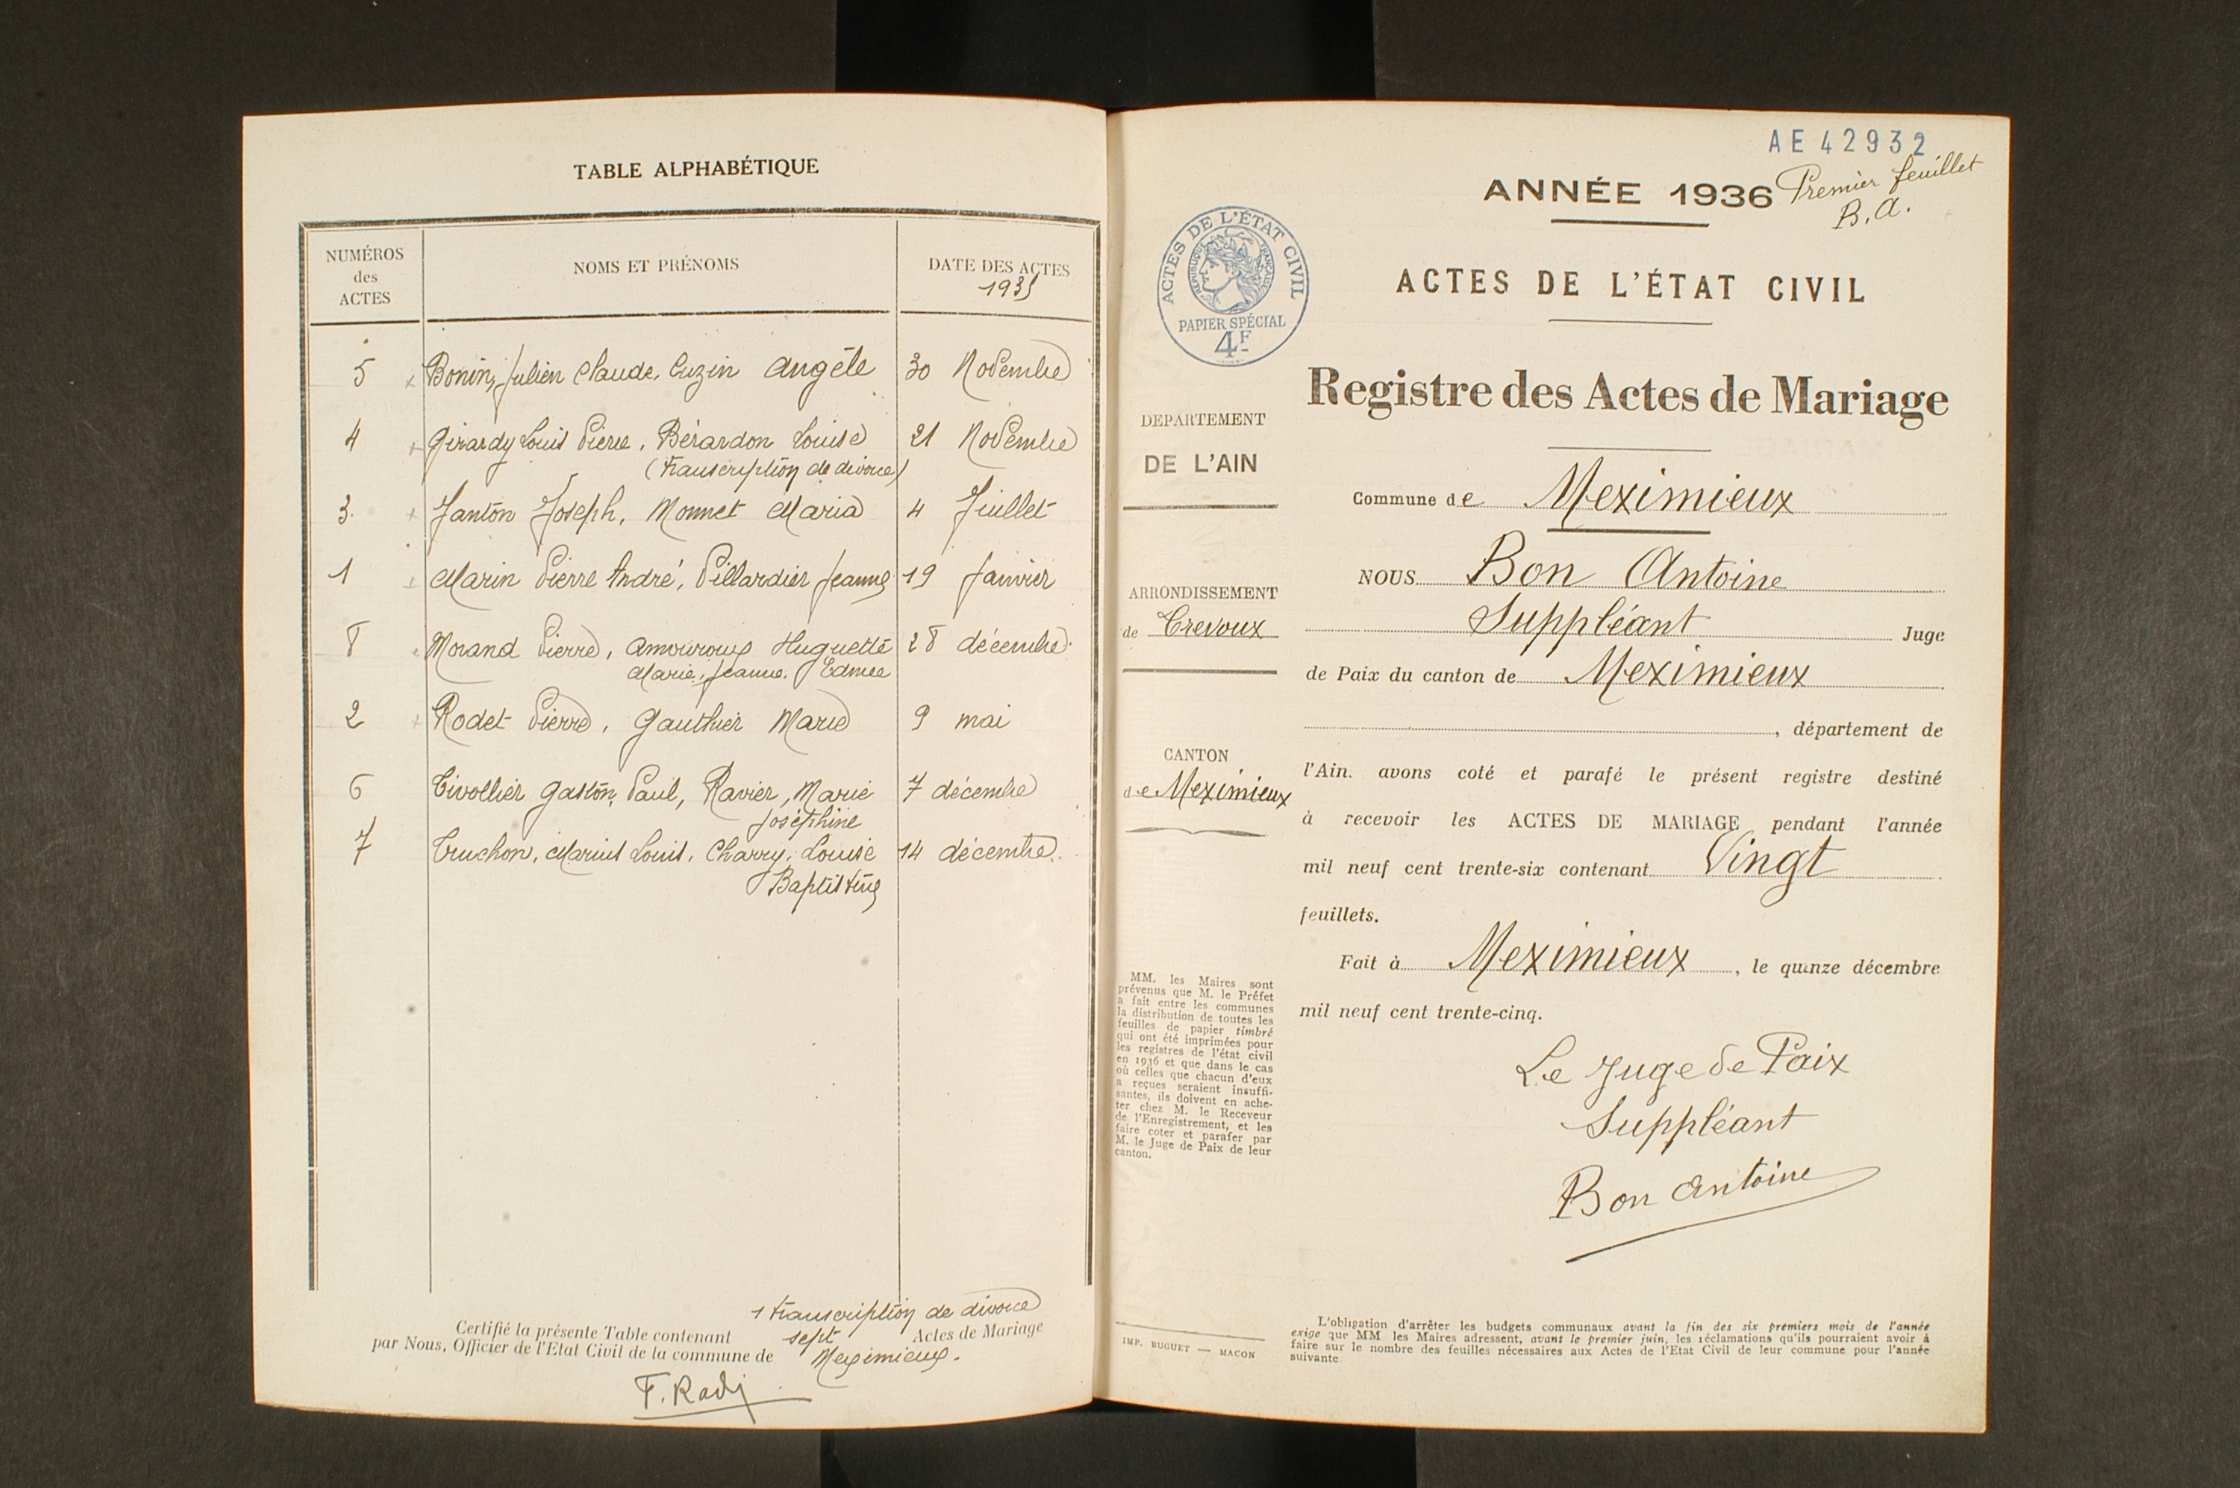 TABLE ALPHABÉTIQUE
NUMÉROS
des
ACTES
NOMS ET PRÉNOMS
DATE DES ACTES
1935
5 Bonin, Julien Claude, Cuzin Angèle 30 Novembre
4 Girardy Louis Pierre, Bérardon Louise 21 Novembre
(transcription de divorce)
3. Janton Joseph, Monnet Maria 4 Juillet
1 Marin Pierre André, Pillardier Jeanne 19 Janvier
8 Morand Pierre, Amouroux Huguette 28 décembre
Marie, Jeanne, Edmée
2 Rodet Pierre, Gauthier Marie 9 mai
6 Tivollier Gaston, Paul, Ravier, Marie 7 décembre
Joséphine
7 Truchon, Marius Louis, Charry, Louise 14 décembre
Baptistine
1 transcription de divorce
Certifié la présente Table contenant sept Actes de Mariage
par Nous, Officier de l'Etat Civil de la commune de Meximieux.
AE 42932
ANNÉE 1936
Premier feuillet
B. A.
ACTES DE L'ÉTAT CIVIL
RÉPUBLIQUE FRANÇAISE
PAPIER SPÉCIAL
4F
ACTES DE L'ÉTAT CIVIL
Registre des Actes de Mariage
DEPARTEMENT
DE L'AIN
ARRONDISSEMENT
de Trevoux
CANTON
de Meximieux
Commune de Meximieux
NOUS Bon Antoine
Suppléant Juge
de Paix du canton de Meximieux
, département de
l'Ain. avons coté et parafé le présent registre destiné
à recevoir les ACTES DE MARIAGE pendant l'année
mil neuf cent trente-six contenant Vingt
feuillets.
Fait à Meximieux, le quinze décembre
mil neuf cent trente-cinq.
Le Juge de Paix
Suppléant
Bon Antoine
MM. les Maires sont
prévenus que M. le Préfet
a fait entre les communes
la distribution de toutes les
feuilles de papier timbré
qui ont été imprimées pour
les registres de l'état civil
en 1936 et que dans le cas
où celles que chacun d'eux
a reçues seraient insuffi-
santes, ils doivent en ache-
ter chez M. le Receveur
de l'Enregistrement, et les
faire coter et parafer par
M. le Juge de Paix de leur
canton.
IMP. BUGUET — MACON
L'obligation d'arrêter les budgets communaux avant la fin des six premiers mois de l'année
exige que MM les Maires adressent, avant le premier juin, les réclamations qu'ils pourraient avoir à
faire sur le nombre des feuilles nécessaires aux Actes de l'Etat Civil de leur commune pour l'année
suivante